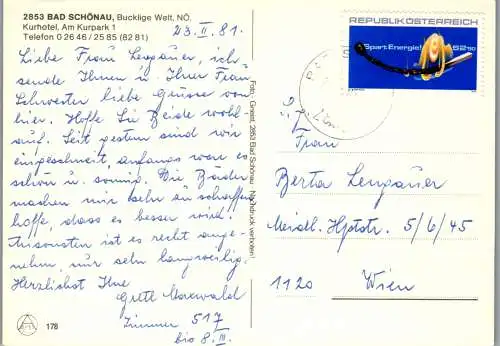 2853 BAD SCHÖNAU, Bucklige Welt, NÖ.
Kurhotel, Am Kurpark 1
Telefon 0 26 46 / 25 85 (82 81)
23. II. 81.
Liebe Frau Lengauer, ich
sende Ihnen u Ihrer Frau
Schwester liebe Grüsse von
hier. Hoffe Sie Beide wohl-
auf. Seit gestern sind wir
eingeschneit, anfangs war es
schön u. sonnig. Die Bäder
machen mir sehr zu schaffen
hoffe, dass es besser wird.
Ansonsten ist es recht ange-
nehm, nur sehr langweilig.
Herzlichst Ihre
Grete Marwald
Zimmer 517
bis 8. III.
178
Foto Gneist, 2853 Bad Schönau · Nachdruck verboten!
REPUBLIK ÖSTERREICH
Spart Energie!
S2.50
Frau
Berta Lengauer
Meidl. Hptstr. 5/6/45
1120 Wien